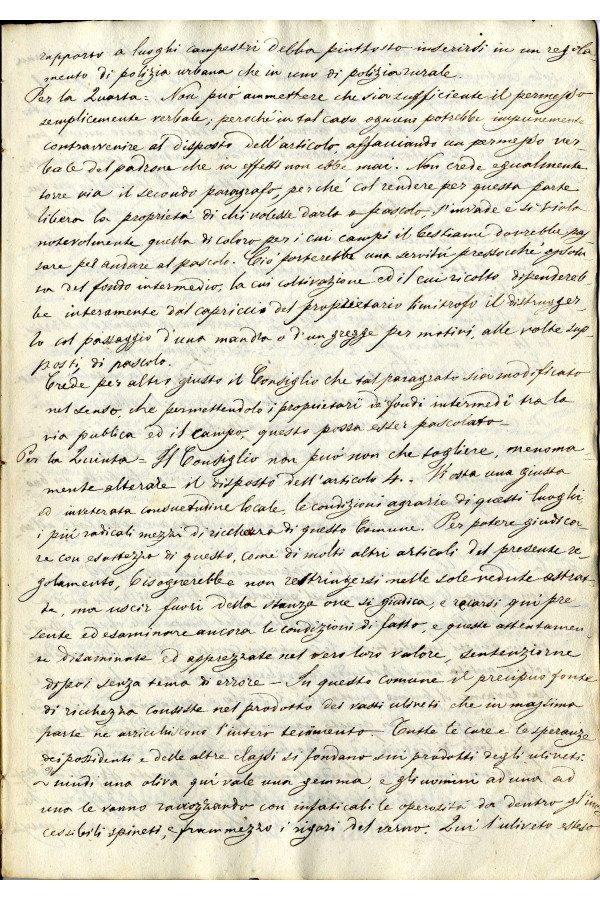 rapporto a luoghi campestri debba piuttosto inserirsi in un regola
mento di polizia urbana che in uno di polizia rurale.
Per la Quarta = Non può ammettere che sia sufficiente il permesso
semplicemente verbale, perché in tal caso ognuno potrebbe impunemente
contravvenire al disposto dell'articolo affacciando un permesso ver
bale del padrone che in effetti non ebbe mai. Non crede egualmente
torre via il secondo paragrafo, perché col rendere per questa parte
libera la proprietà di chi volesse darla a pascolo, s'invade e si viola
notevolmente quella di coloro per i cui campi il bestiame dovrebbe pas
sare per andare al pascolo. Ciò porterebbe una servitù pressocché assolu
ta del fondo intermedio, la cui coltivazione ed il cui ricolto dipendereb
be interamente dal capriccio del proprietario limitrofo il distrugger
lo col passaggio d'una mandra o d'un gregge per motivi, alle volte sup
posti, di pascolo.
Crede per altro giusto il Consiglio che tal paragrafo sia modificato
nel senso, che permettendolo i proprietarî de' fondi intermedî tra la
via pubblica ed il campo, questo possa esser pascolato.
Per la Quinta = Il Consiglio non può non che togliere, menoma
mente alterare il disposto dell'articolo 4. Vi osta una giusta
ed inveterata consuetudine locale, le condizioni agrarie di questi luoghi
i più radicali mezzi di ricchezza di questo Comune. Per potere giudica
re con esattezza di questo, come di molti altri articoli del presente re
golamento, bisognerebbe non restringersi nelle sole vedute astrat
te, ma uscir fuori della stanza ove si giudica, e recarsi qui pre
sente ed esaminare ancora le condizioni di fatto, e queste attentamen
te disaminate ed apprezzate nel vero loro valore, sentenziarne
dipoi senza tema di errore — In questo comune il precipuo fonte
di ricchezza consiste nel prodotto dei vasti uliveti che in massima
parte ne arricchiscono l'intero tenimento. Tutte le cure e le speranze
dei possidenti e delle altre classi si fondano sui prodotti degli uliveti.
Quindi una oliva qui vale una gemma, e gli uomini ad una ad
una le vanno racozzando con infaticabile operosità da dentro gl'inac
cessibili spineti, e frammezzo i rigori del verno. Qui l'uliveto esteso